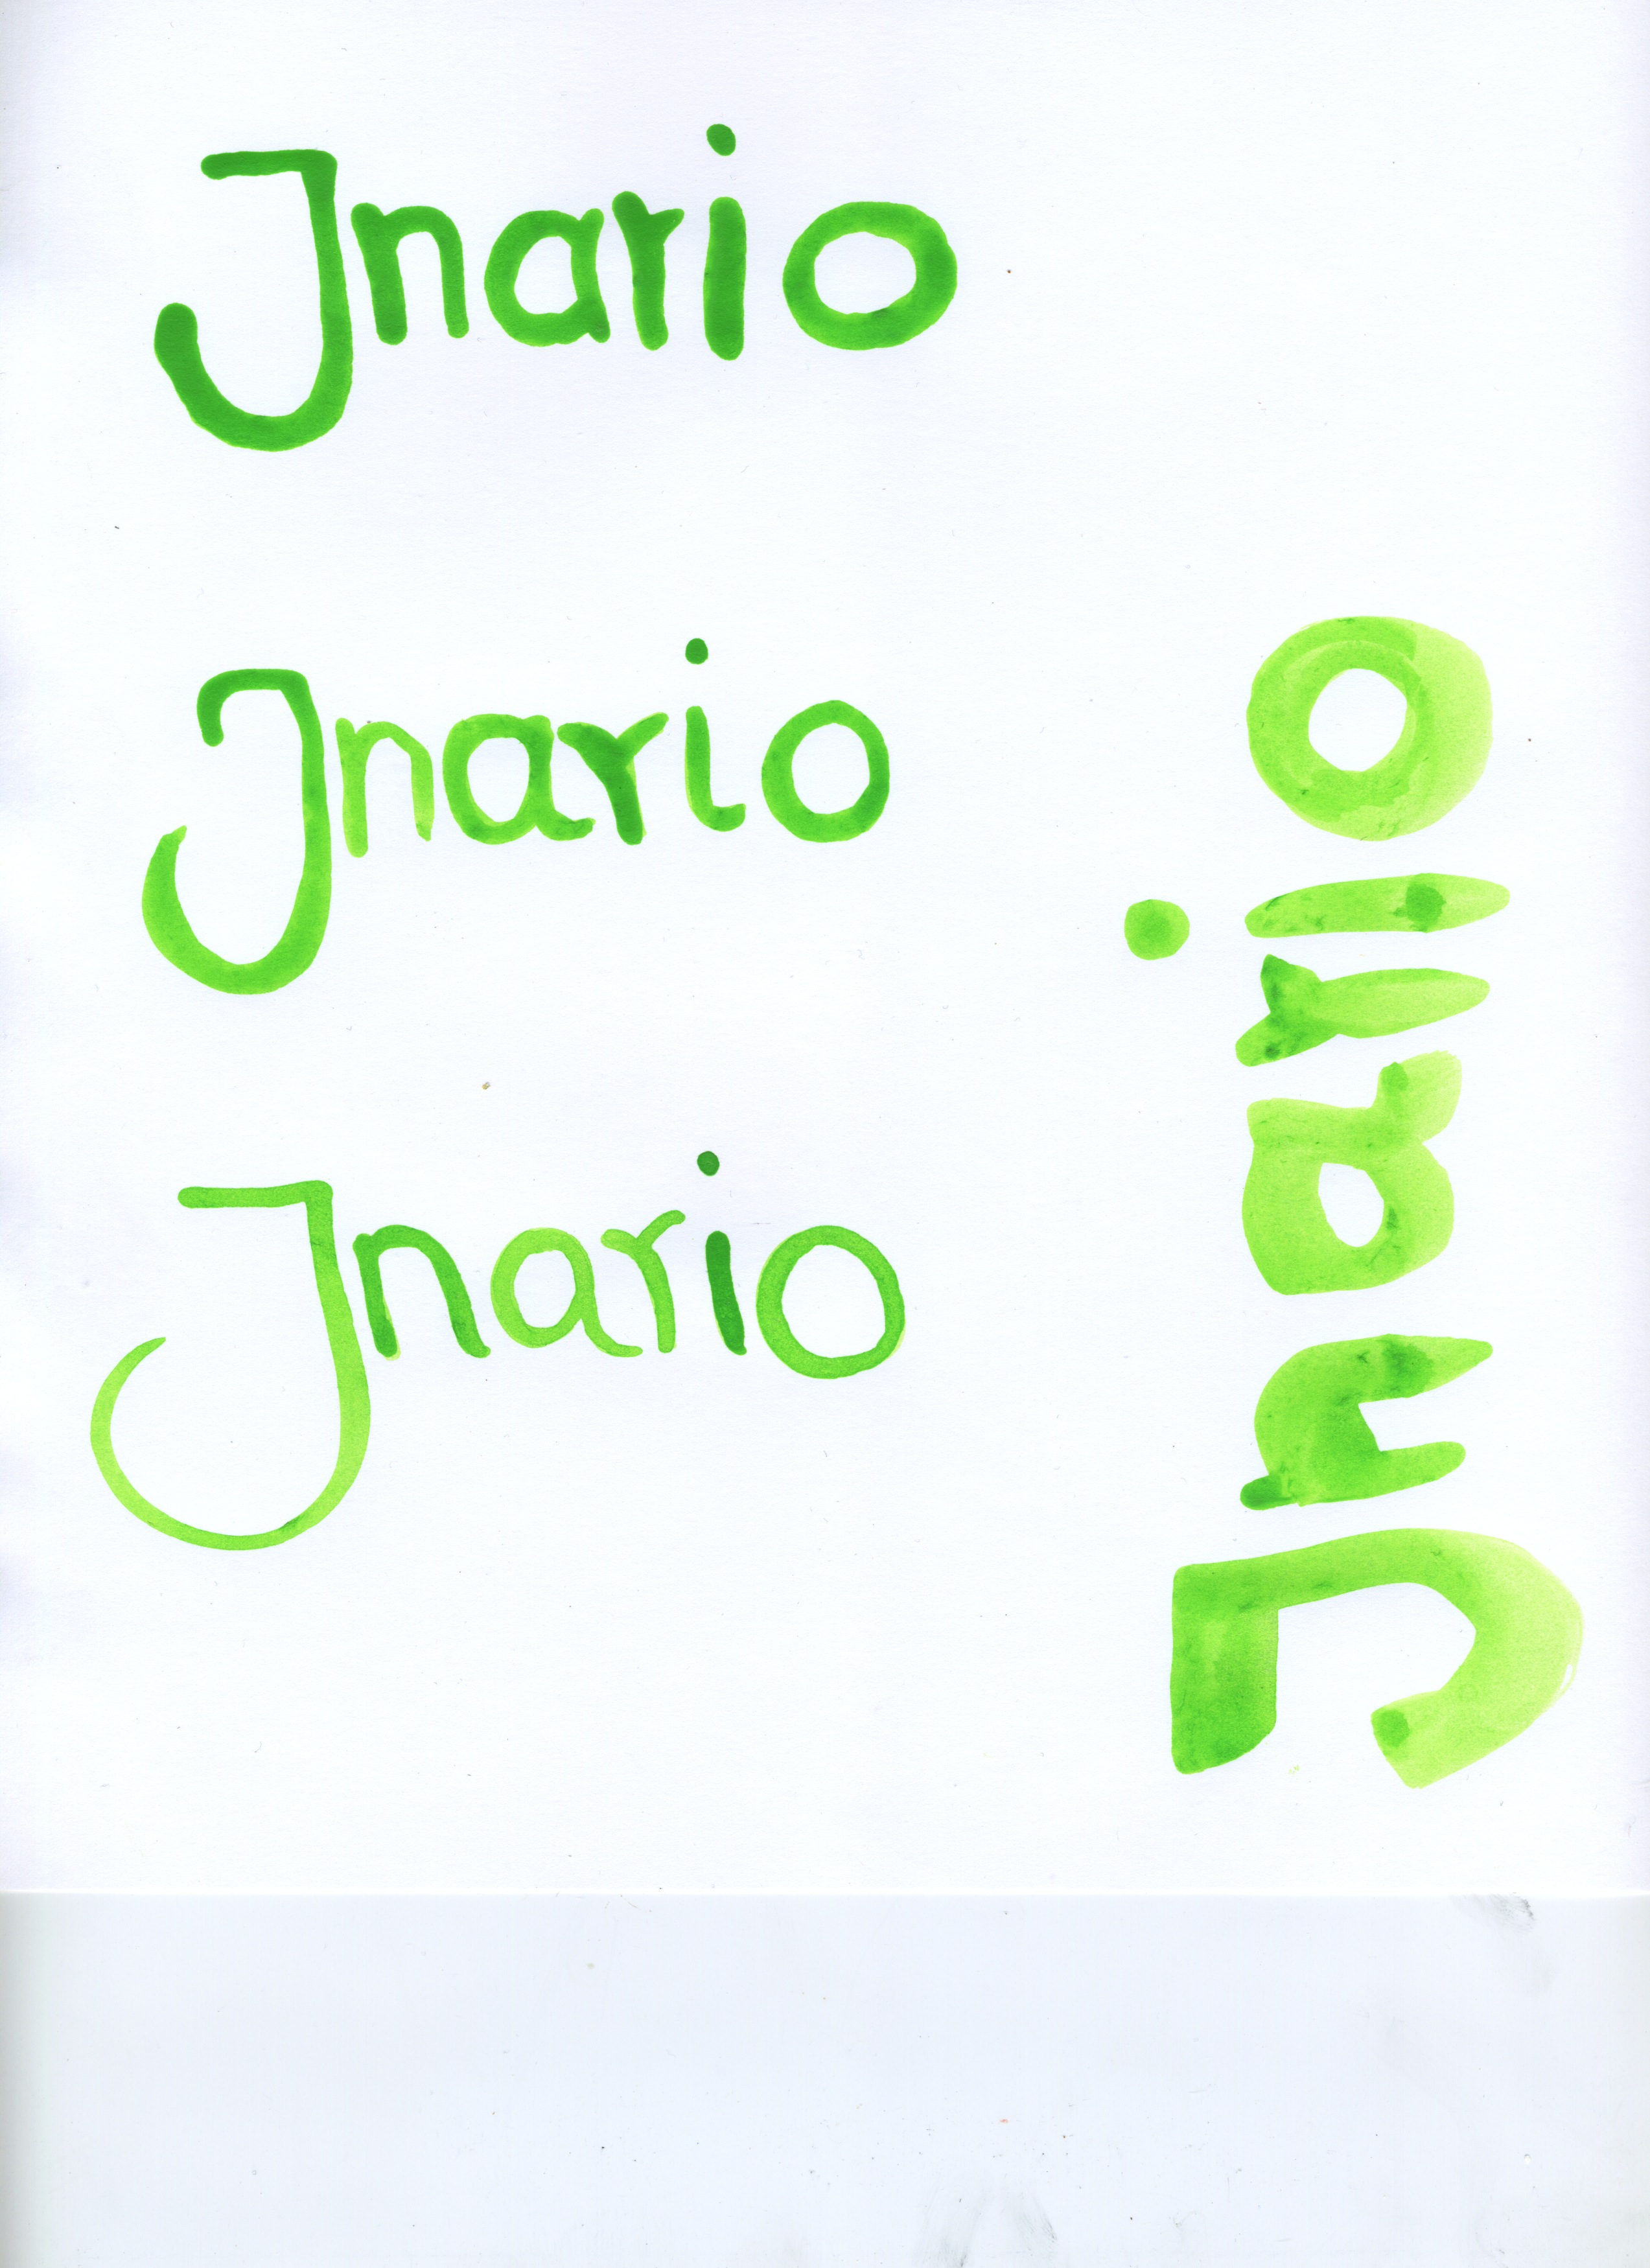 Jnario
Jnario
Jnario
Jnario